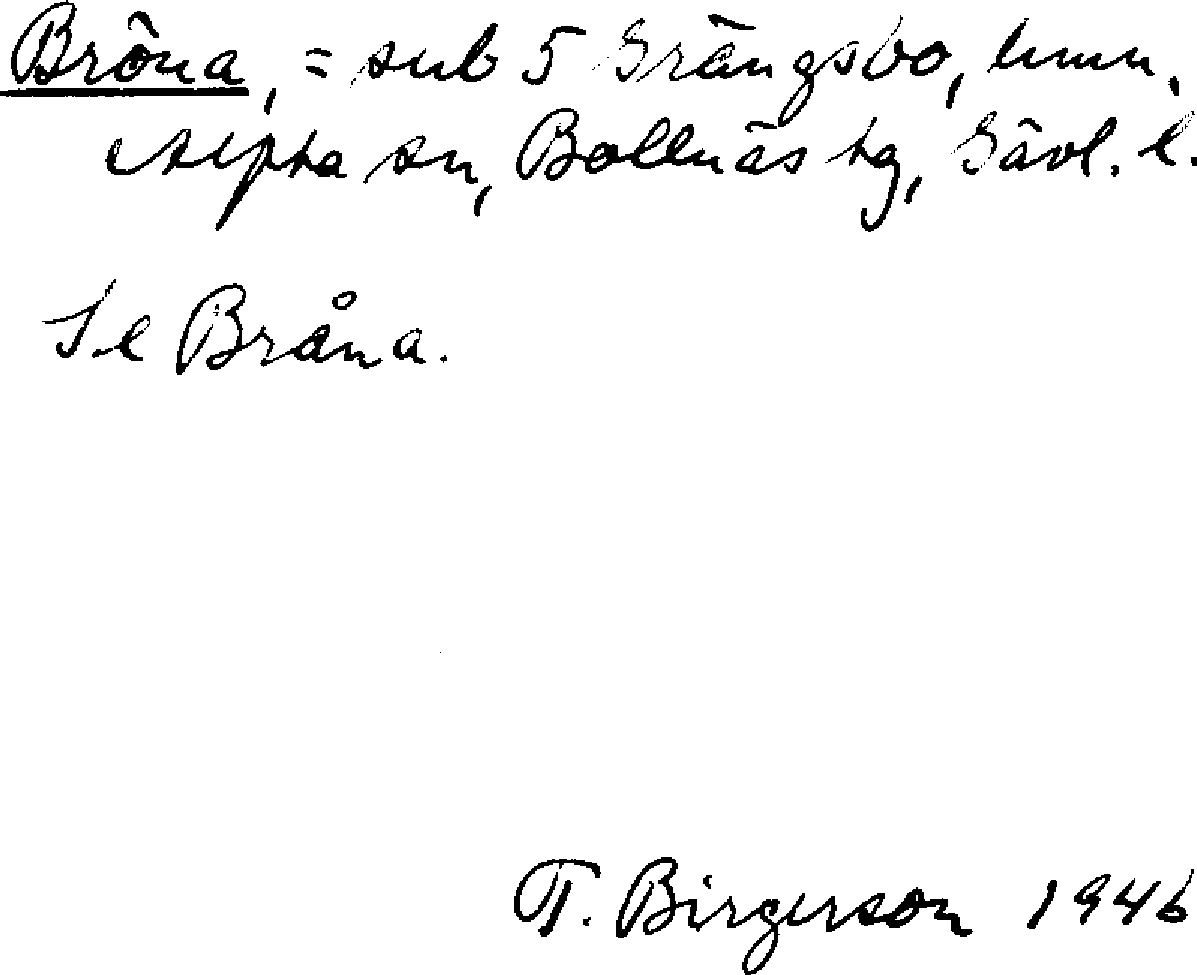 Bröna, = sub 5 Grängsbo, hmn,
Alfta sn, Bollnäs tg, Gävl. l.
Se Bråna.
T. Birgerson 1946